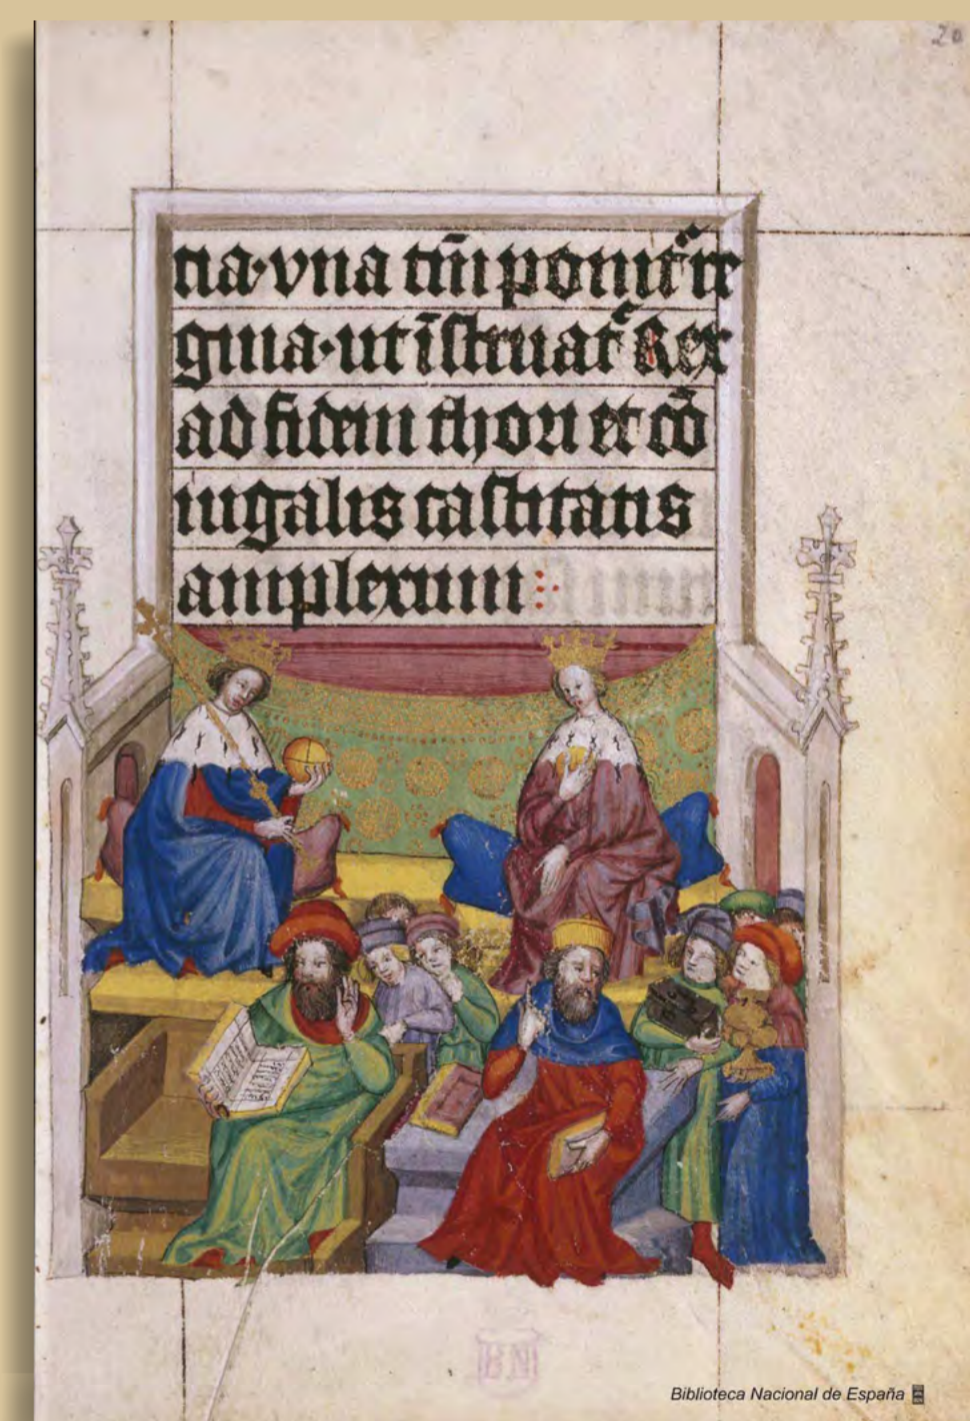 20
cia·vna tm̄ ponit᷑ re
gina·ut ī struat᷑ Rex
ad fidem thori et cō
iugalis castitatis
amplexum
BN
Biblioteca Nacional de España